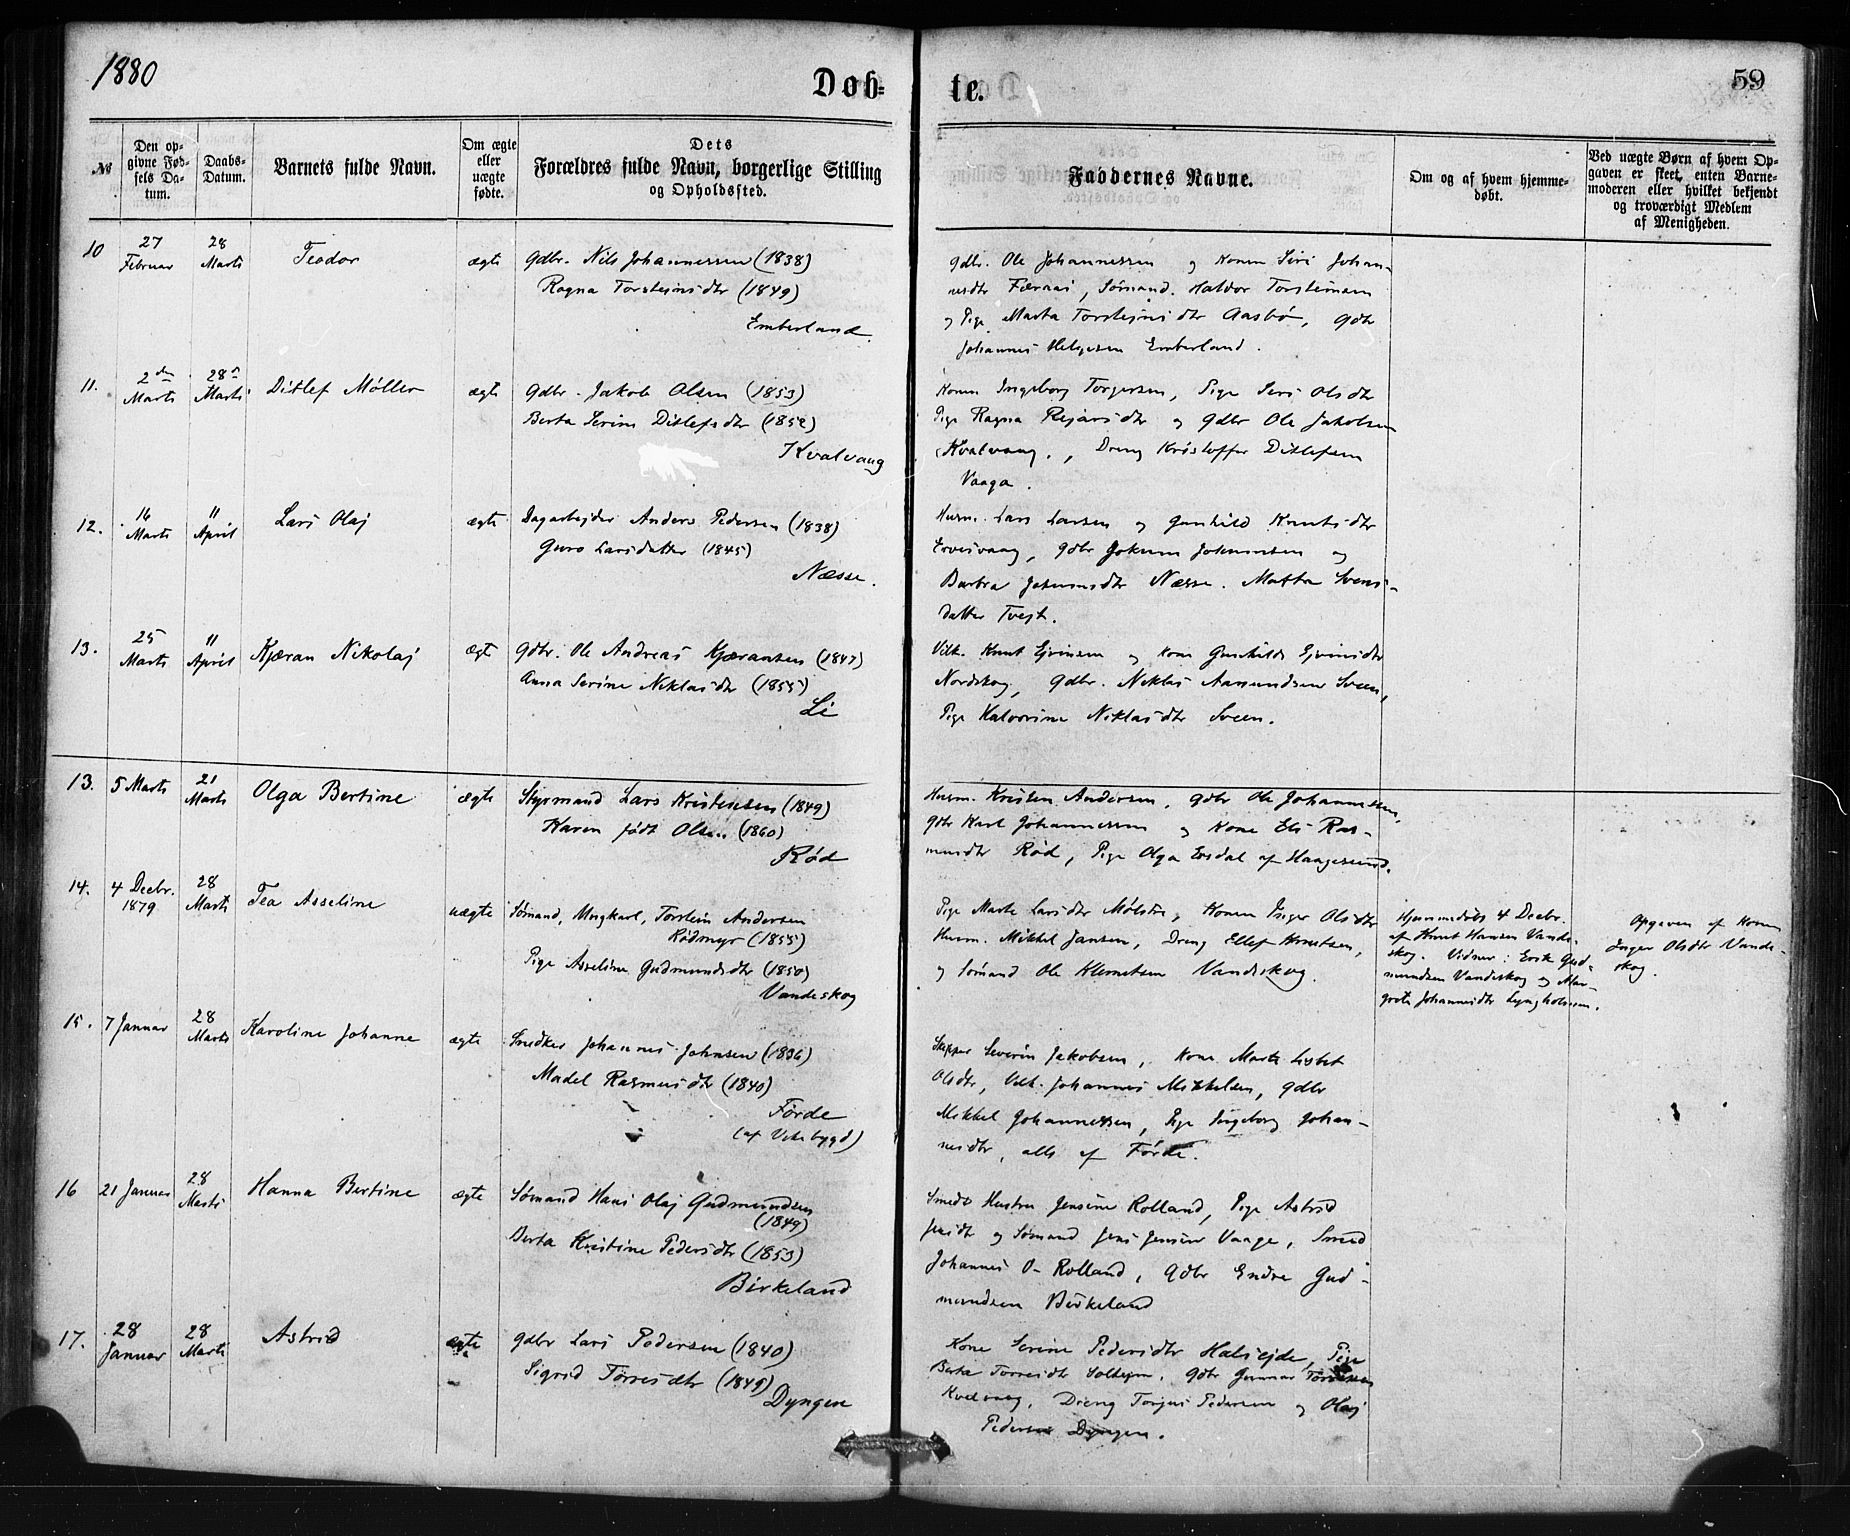 1880
Døb-
te.
59
№
Den op-
givne Fød-
sels Da-
tum.
Daabs-
Datum.
Barnets fulde Navn.
Om ægte
eller
uægte
fødte.
Dets
Forældres fulde Navn, borgerlige Stilling
og Opholdssted.
Faddernes Navne.
Om og af hvem hjemme-
døbt.
Ved uægte Børn af hvem Op-
gaven er skeet, enten Barne-
moderen eller hvilket bekjendt
og troværdigt Medlem
af Menigheden.
10
27
Februar
28
Marts
Teodor
ægte
Gdbr. Nils Johannessen (1838)
Ragna Torsteinsdtr (1849)
Emberland.
Gdbr. Ole Johannessen og Konen Siri Johan-
nesdtr Færaas, Sømand. Haldor Torsteinsen
og Pige Marta Torsteinsdtr Aasbø, Gdbr
Johannes Helgesen Emberland.
11.
2den
Marts
28n
Marts
Ditlef Møller
ægte
Gdbr. Jakob Olsen (1853)
Berta Serine Ditlefsdtr (1852)
Kvalvaag
Konen Ingeborg Torgersen, Pige Seri Olsdtr
Pige Ragna Rejarsdtr og Gdbr Ole Jakobsen
Kvalvaag., Dreng Kristoffer Ditlefsen
Vaaga.
12.
16
Marts
11
April
Lars Olaj
ægte
Dagarbejder Anders Pedersen (1838)
Guro Larsdatter (1845)
Næsse.
Husm. Lars Larsen og Gunhild Knutsdtr
gdbr Jokum Johannesen og
Barbra Johannesdtr Næsse. Martha Svens-
datter Tvejt.
13.
25
Marts
11
April
Kjæran Nikolaj
ægte
Gdbr. Ole Andreas Kjæransen (1847)
Anna Serine Niklasdtr (1855)
Li
Vilk. Knut Ejvinsen og Kone Gunhilde Ejvinsdtr
Nordskog, Gdbr. Niklas Aamundsen Sveen,
Pige Halvorine Niklasdtr Sveen.
13.
5 Marts
21
Marts
Olga Bertine
ægte
Styrmand Lars Kristensen (1849)
Karen født Olsen (1860)
Rød
Husm. Kristen Andersen, Gdbr Ole Johannessen,
Gdbr Karl Johannessen og Kone Eli Ras-
musdtr Rød, Pige Olga Ersdal af Haugesund.
14.
4 Decbr.
1879
28
Marts
Tea Asseline
uægte
Sømand, Ungkarl, Torstein Andersen
Rødmyr (1855)
Pige Asseline Gudmundsdtr (1850)
Vandeskog
Pige Marte Larsdtr Mølstre, Konen Inger Olsdtr
Husm. Mikkel Jansen, Dreng Ellef Knutsen,
og Sømand Ole Klemetsen Vandeskog.
Hjemmedøbt 4 Decbr.
af Knut Hansen Vande-
skog. Vidner: Erik Gud-
mundsen Vandeskog og Mar-
grete Johannesdtr Lyngholmen.
Opgaven af Konen
Inger Olsdtr Vande-
skog.
15.
7 Januar
28
Marts
Karoline Johanne
ægte
Snedker Johannes Johnsen (1836)
Madel Rasmusdtr (1840)
Førde
(af Vikebygd)
Skipper Severin Jakobsen, Kone Marte Lisbet
Olsdtr, Vilk. Johannes Mikkelsen, Gdbr
Mikkel Johannessen, Pige Ingeborg Johan-
nesdtr, alle af Førde.
16
21 Januar
28
Marts
Hanna Bertine
ægte
Sømand Hans Olaj Gudmundsen
(1849)
Berta Kristine Pedersdtr (1853)
Birkeland
Smeds Hustru Jensine Rolland, Pige Astrid
Jensdtr og Sømand Jens Jensen Vaage, Smed
Johannes O- Rolland, Gdbr Endre Gud-
mundsen Birkeland
17.
28
Januar
28
Marts
Astrid
ægte
Gdbr Lars Pedersen (1840)
Sigrid Torresdtr (1849)
Dyngen
Kone Serine Pedersdtr Halsejde, Pige
Berta Torresdtr Solheim, Gdbr Gunnar Torresen
Kvalvaag, Dreng Torjus Pedersen og Olaj
Pedersen Dyngen.